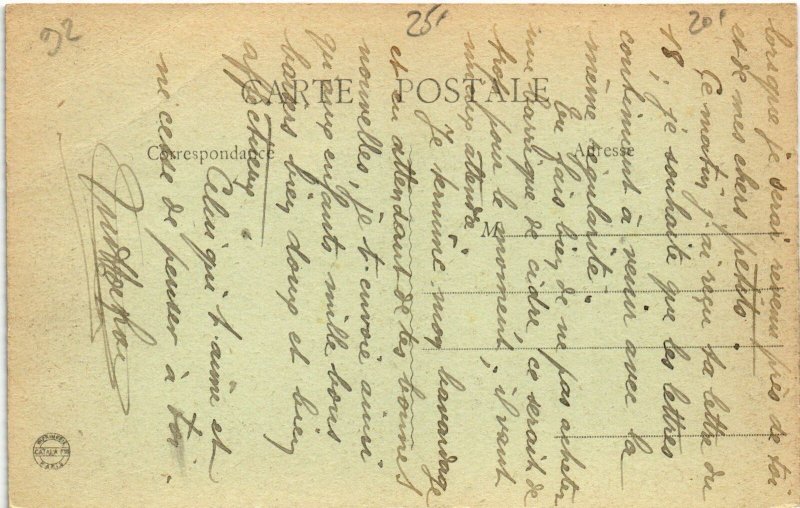 92
25'
20'
CARTE POSTALE
Correspondance
Adresse
M
lorsque je serai revenu près de toi
et de mes chers petits
Ce matin j'ai reçu ta lettre du
18, je souhaite que les lettres
continuent à venir avec la
même régularité.
Tu fais bien de ne pas acheter
une barrique de cidre, ce serait de
trop pour le moment, il vaut
mieux attendre
Je termine mon bavardage
et en attendant de tes bonnes
nouvelles, je t'envoie ainsi
qu'aux enfants mille bons
baisers bien doux et bien
affectueux
Celui qui t'aime et
ne cesse de penser à toi
CATALA FRES
PARIS